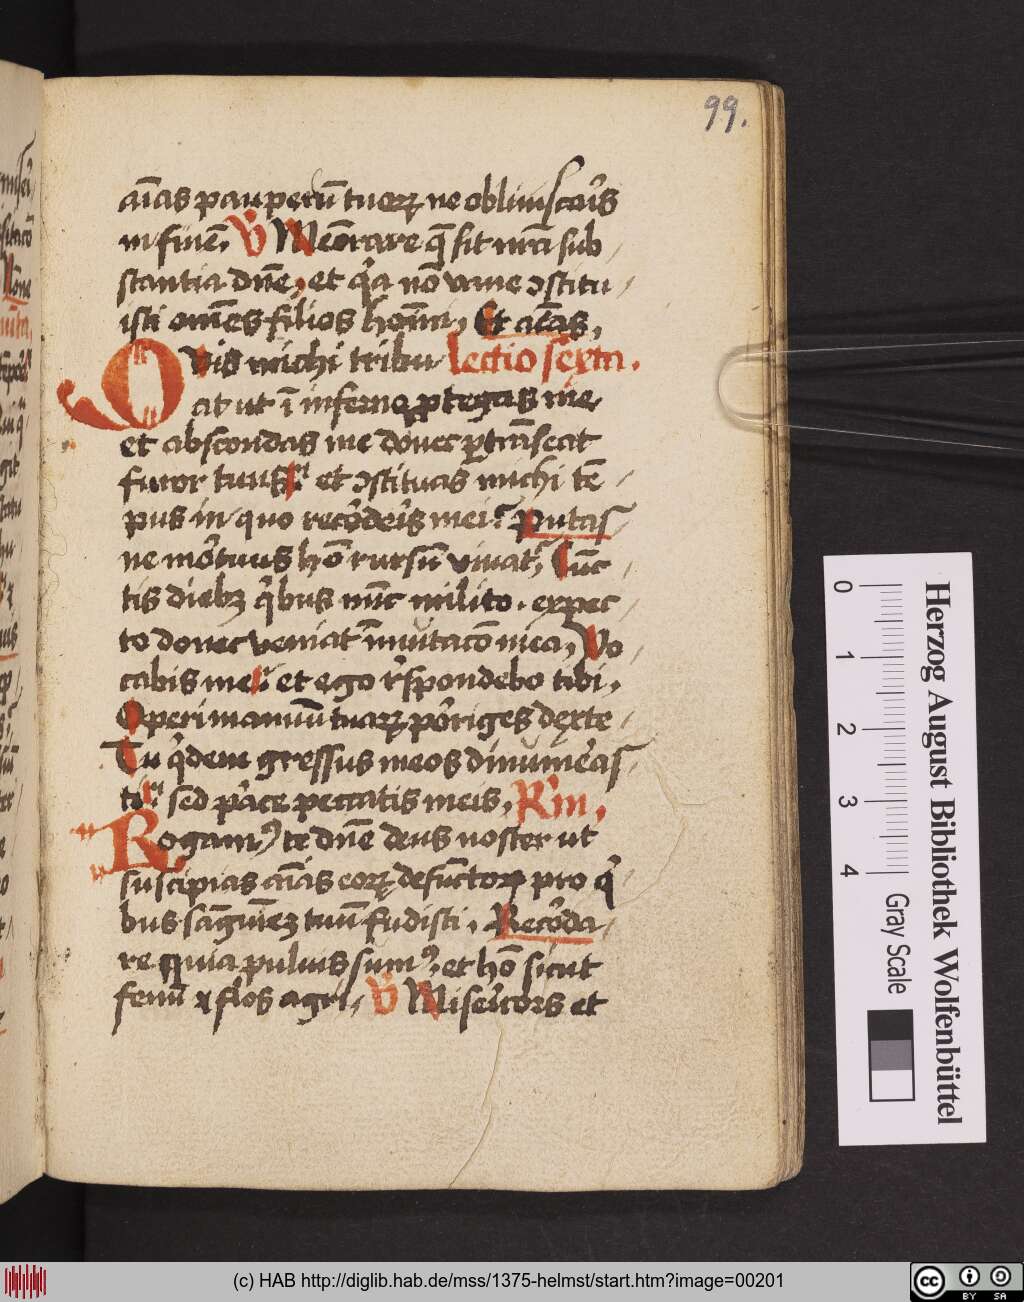 99.
aīas pauperū tuoꝝ ne obliuiscar̄s
in finē. V̓ Meōrare q̄ sit mrā sub
stantia dn̄e, et qͥa nō vane ↄstitu
isti om̄es filios hoīm, Et aīas,
Quis michi tribu lectio sexta.
at ut ī inferno ꝓtegas me
et abscondas me donec ꝑtrāseat
furor tuus et ↄstituas michi tē
pus in quo recōderis mei Putas
ne mōtuus hō rursū viuat, Cūc
tis diebꝫ qͥbus nūc milito. expec
to donec veniat īmutacō mea, Vo
cabis me et ego r̄spondebo tibi,
Operi manuū tuaꝝ pōriges dexte
Tu qͥdem gressus meos dinūīeras
ti sed ꝑce peccatis meis, R̄m,
Rogamꝰ te dn̄e deus noster ut
suscipias aīas eoꝝ defūctoꝝ pro qͥ
bus sāguīeꝫ tuū fudisti, Recōda
re quia puluis sumꝰ, et hō sicut
fenū ⁊ flos agri, V̓ Misericors et
Herzog August Bibliothek Wolfenbüttel
0 1 2 3 4 Gray Scale
(c) HAB http://diglib.hab.de/mss/1375-helmst/start.htm?image=00201
cc BY SA